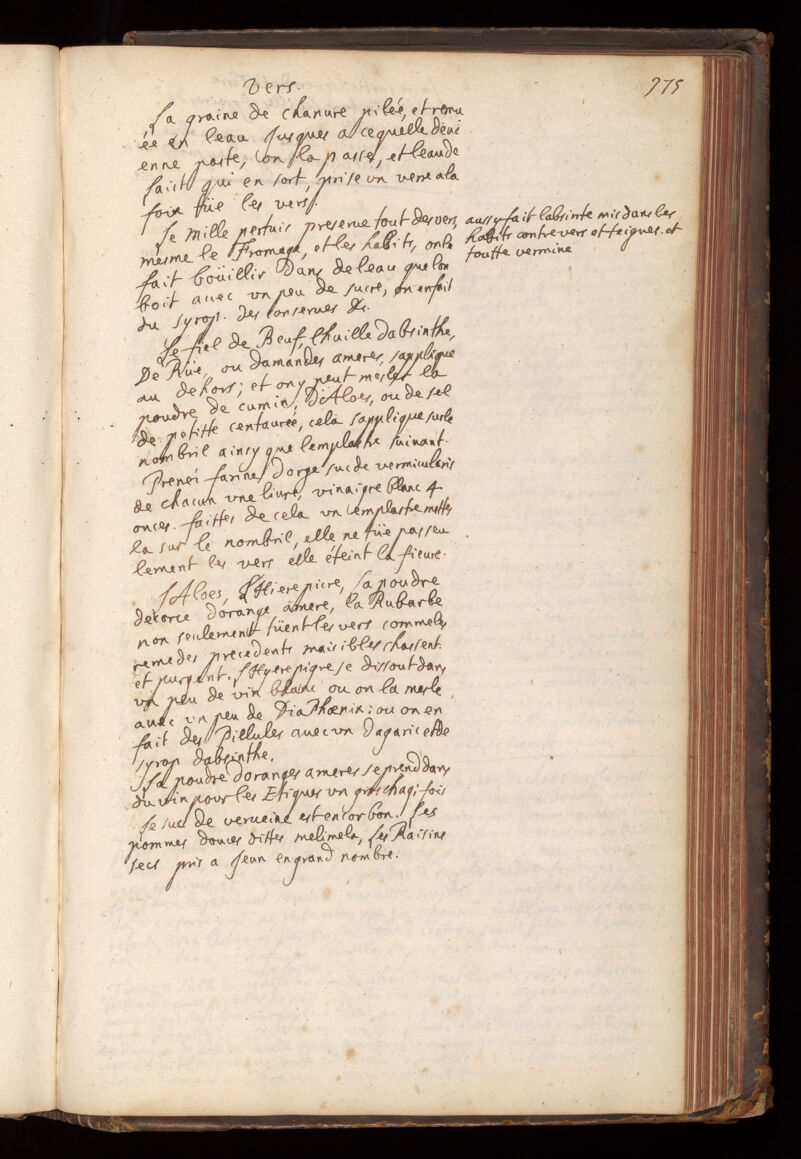 Vers.
975
La graine de chanure pilée, et remu
ée en leau jusques a cequelle devi
enne paste, on la passe, et leau de
laict qui en sort, prise un verre a la
fois tüe les vers.
Le Mille pertuis preserue tout des vers,
mesme le Fromage, et les habits, on le
fait boüillir dans de leau que lon
boit auec un peu de sucre, on en fait
du syrop. des conserues &c.
aussy fait labsinte mis dans les
habits contre vers et teignes. et
toutte vermine
Le fiel de Beuf, lhuille dabsinthe,
De Rüe, ou damandes ameres, sapplique
au dehors; et on y peut mesler la
poudre de cumin, DAloes, ou de sel
de petitte centaurée, cela sapplique sur le
nombril ainsy que lemplastre suiuant.
Prenez farine Dorge suc de vermicularis
de chacun une liure, vinaigre blanc 4
onces. faittes de cela un emplastre mettes
la sur le nombril, elle ne tüe pas seu
lement les vers elle éteint la fieure.
LAloes, LHiere picre, La poudre
decorce dorange amere, la Rubarbe
non seulement tüent les vers comme les
remedes precedents mais ils les chassent
et purgent. LHyere pigre se dissout dans
un peu de vin blanc ou on la mesle
auec un peu de DiaPhœnix: ou on en
fait des Pillules auec un dagaric et de
syrop dabsinthe.
La poudre doranges ameres se prend dans
du vin pour les Etiques un gros chaq; fois
Le suc de verueine est encor bon. Les
pommes douces dittes melimela, Les Raisins
secs pris a Jeun en grand nombre.